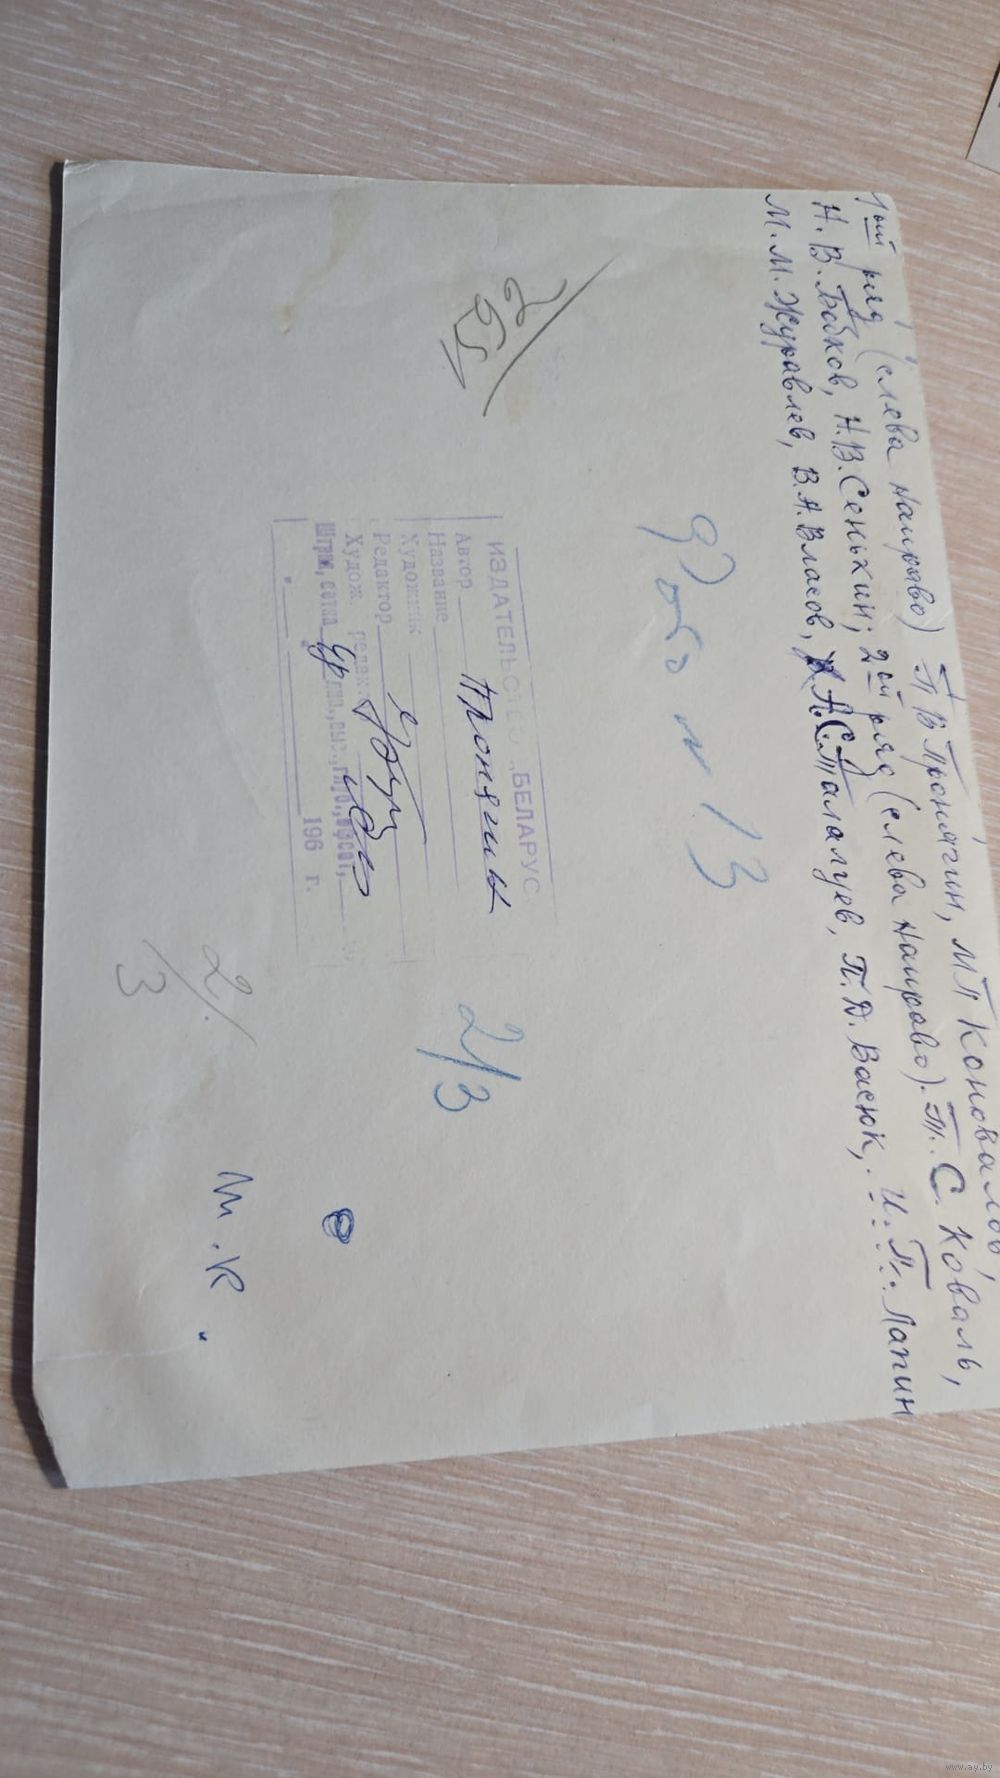 1ый ряд (слева направо) П В Пронягин, М П Коновалов,
Н. В. Бобков, Н. В. Сенькин; 2ой ряд (слева направо). Т. С. Коваль,
М. М. Журавлев, В. А. Власов, А. С. Талалуев, П. Д. Васюк, И. П. Лапин
Фото N 13
2/51
ИЗДАТЕЛЬСТВО „БЕЛАРУСЬ
Автор Пронягин
Название
Художник
Редактор
Худож. редак.
Штрих, сетка
196 г.
2/3
2/3
М. К.
www.ay.by